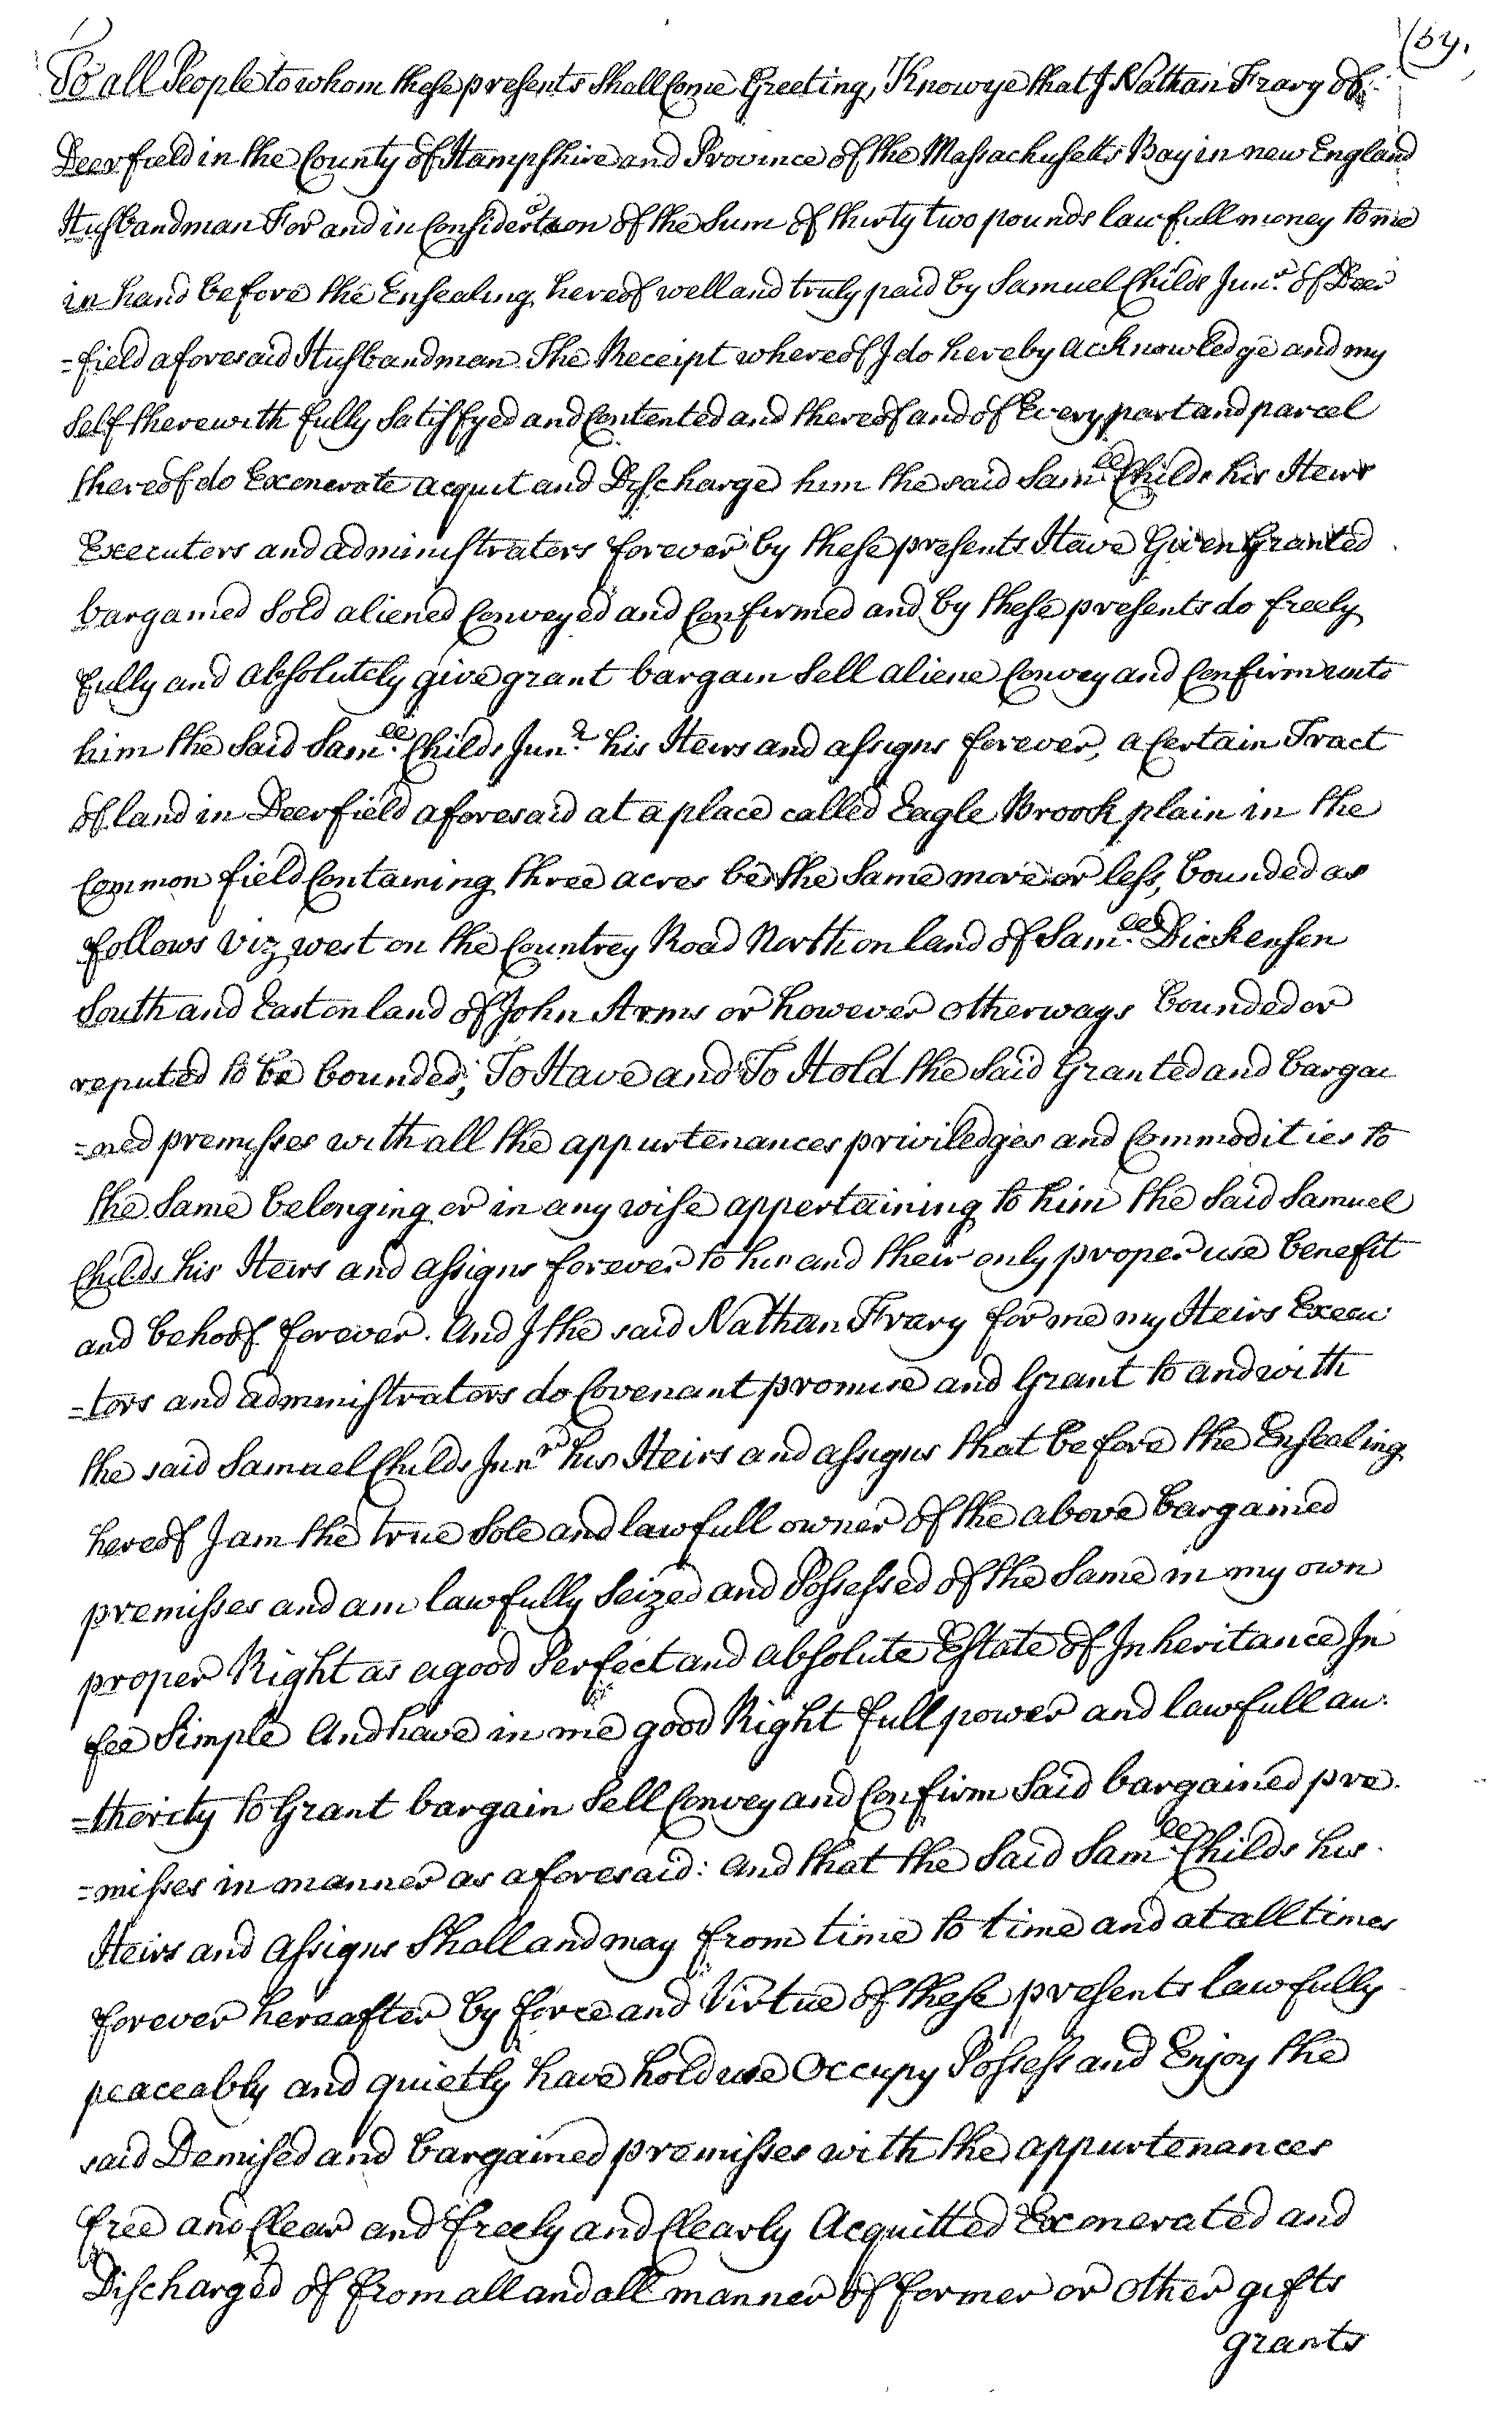 To all People to whom these presents Shall Come Greeting, Know ye that I Nathan Frary of
Deerfield in the County of Hampshire and Province of the Massachusetts Bay in new England
Husbandman For and in Consideration of the Sum of thirty two pounds lawfull money to me
in hand before the Ensealing hereof well and truly paid by Samuel Childs Junr. of Deer
=field aforesaid Husbandman The Receipt whereof I do hereby acknowledge and my
Self therewith fully Satisfyed and Contented and thereof and of Every part and parcel
thereof do Exonerate acquit and Discharge him the said Samll. Childs his Heirs
Executers and administraters forever by these presents Have Given Granted
bargained Sold aliened Conveyed and Confirmed and by these presents do freely
fully and absolutely give grant bargain Sell aliene Convey and Confirm unto
him the Said Samll. Childs Junr. his Heirs and assigns forever, a Certain Tract
of land in Deerfield aforesaid at a place called Eagle Brook plain in the
Common field Containing three acres be the Same more or less, bounded as
follows viz west on the Countrey Road North on land of Samll. Dickensen
South and East on land of John Arms or however otherways bounded or
reputed to be bounded; To Have and To Hold the Said Granted and bargai
=ned premisses with all the appurtenances priviledges and Commodities to
the Same belonging or in any wise appertaining to him the Said Samuel
Childs his Heirs and assigns forever to his and their only proper use benefit
and behoof forever. And I the said Nathan Frary for me my Heirs Execu
=tors and administrators do Covenant promise and Grant to and with
the said Samuel Childs Junr his Heirs and assigns that before the Ensealing
hereof I am the true Sole and lawfull owner of the above bargained
premisses and am lawfully Seized and Possessed of the Same in my own
proper Right as a good Perfect and absolute Estate of Inheritance In
fee Simple And have in me good Right full power and lawfull au
=thority to Grant bargain Sell Convey and Confirm Said bargained pre
=misses in manner as aforesaid: And that the Said Samll Childs his
Heirs and Assigns Shall and may from time to time and at all times
forever hereafter by force and Virtue of these presents lawfully
peaceably and quietly have hold use Occupy Possess and Enjoy the
said Demised and bargained premisses with the appurtenances
free and Clear and freely and Clearly Acquitted Exonerated and
Discharged of from all and all manner of former or other gifts
grants